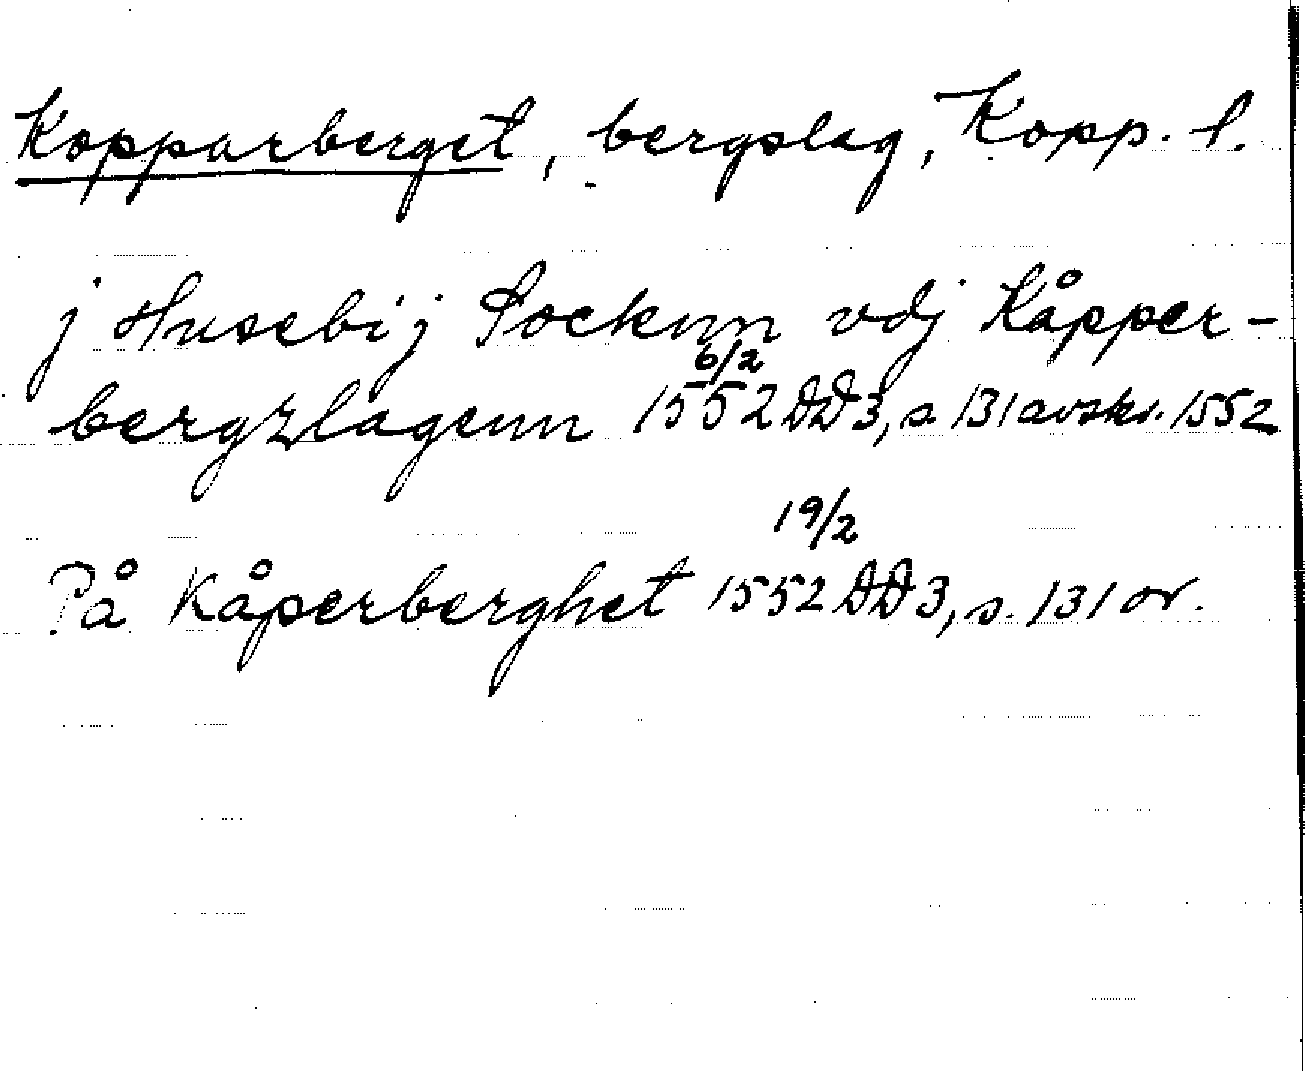 Kopparberget, bergslag, Kopp. l.
j Husebij Socknn vdj Kåpper-
bergzlagenn 6/2 1552 DD3, s. 131 avskr. 1552
På Kåperberghet 19/2 1552 DD3, s. 131 or.